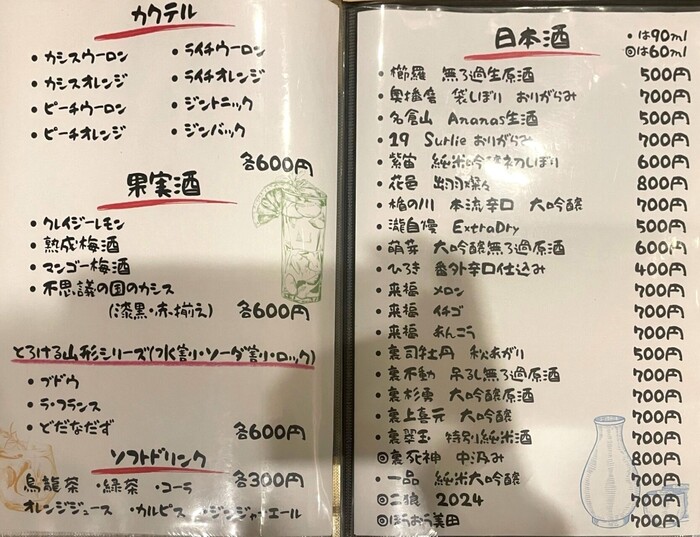 カクテル
・カシスウーロン ・ライチウーロン
・カシスオレンジ ・ライチオレンジ
・ピーチウーロン ・ジントニック
・ピーチオレンジ ・ジンバック
各600円
果実酒
・クレイジーレモン
・熟成梅酒
・マンゴー梅酒
・不思議の国のカシス
(漆黒・赤・揃え) 各600円
とろける山形シリーズ(水割り・ソーダ割り・ロック)
・ブドウ
・ラ・フランス
・どだなだず 各600円
ソフトドリンク
烏龍茶 ・緑茶 ・コーラ 各300円
オレンジジュース ・カルピス ・ジンジャーエール
日本酒 ・は90ml
◎は60ml
・櫛羅 無ろ過生原酒 500円
・奥播磨 袋しぼり おりがらみ 700円
・名倉山 Ananas生酒 500円
・19 Surlie おりがらみ 700円
・紫宙 純米吟醸初しぼり 600円
・花邑 出羽燦々 800円
・楯の川 本流辛口 大吟醸 700円
・瀧自慢 ExtraDry 500円
・萌芽 大吟醸無ろ過原酒 600円
・ひろき 番外辛口仕込み 400円
・来福 メロン 700円
・来福 イチゴ 700円
・来福 あんこう 700円
・裏司牡丹 秋あがり 500円
・裏不動 吊るし無ろ過原酒 700円
・裏杉勇 大吟醸原酒 700円
・裏上喜元 大吟醸 700円
・裏翠玉 特別純米酒 700円
◎裏死神 中汲み 800円
・一品 純米大吟醸 700円
◎二狼 2024 700円
◎ほうおう美田 700円